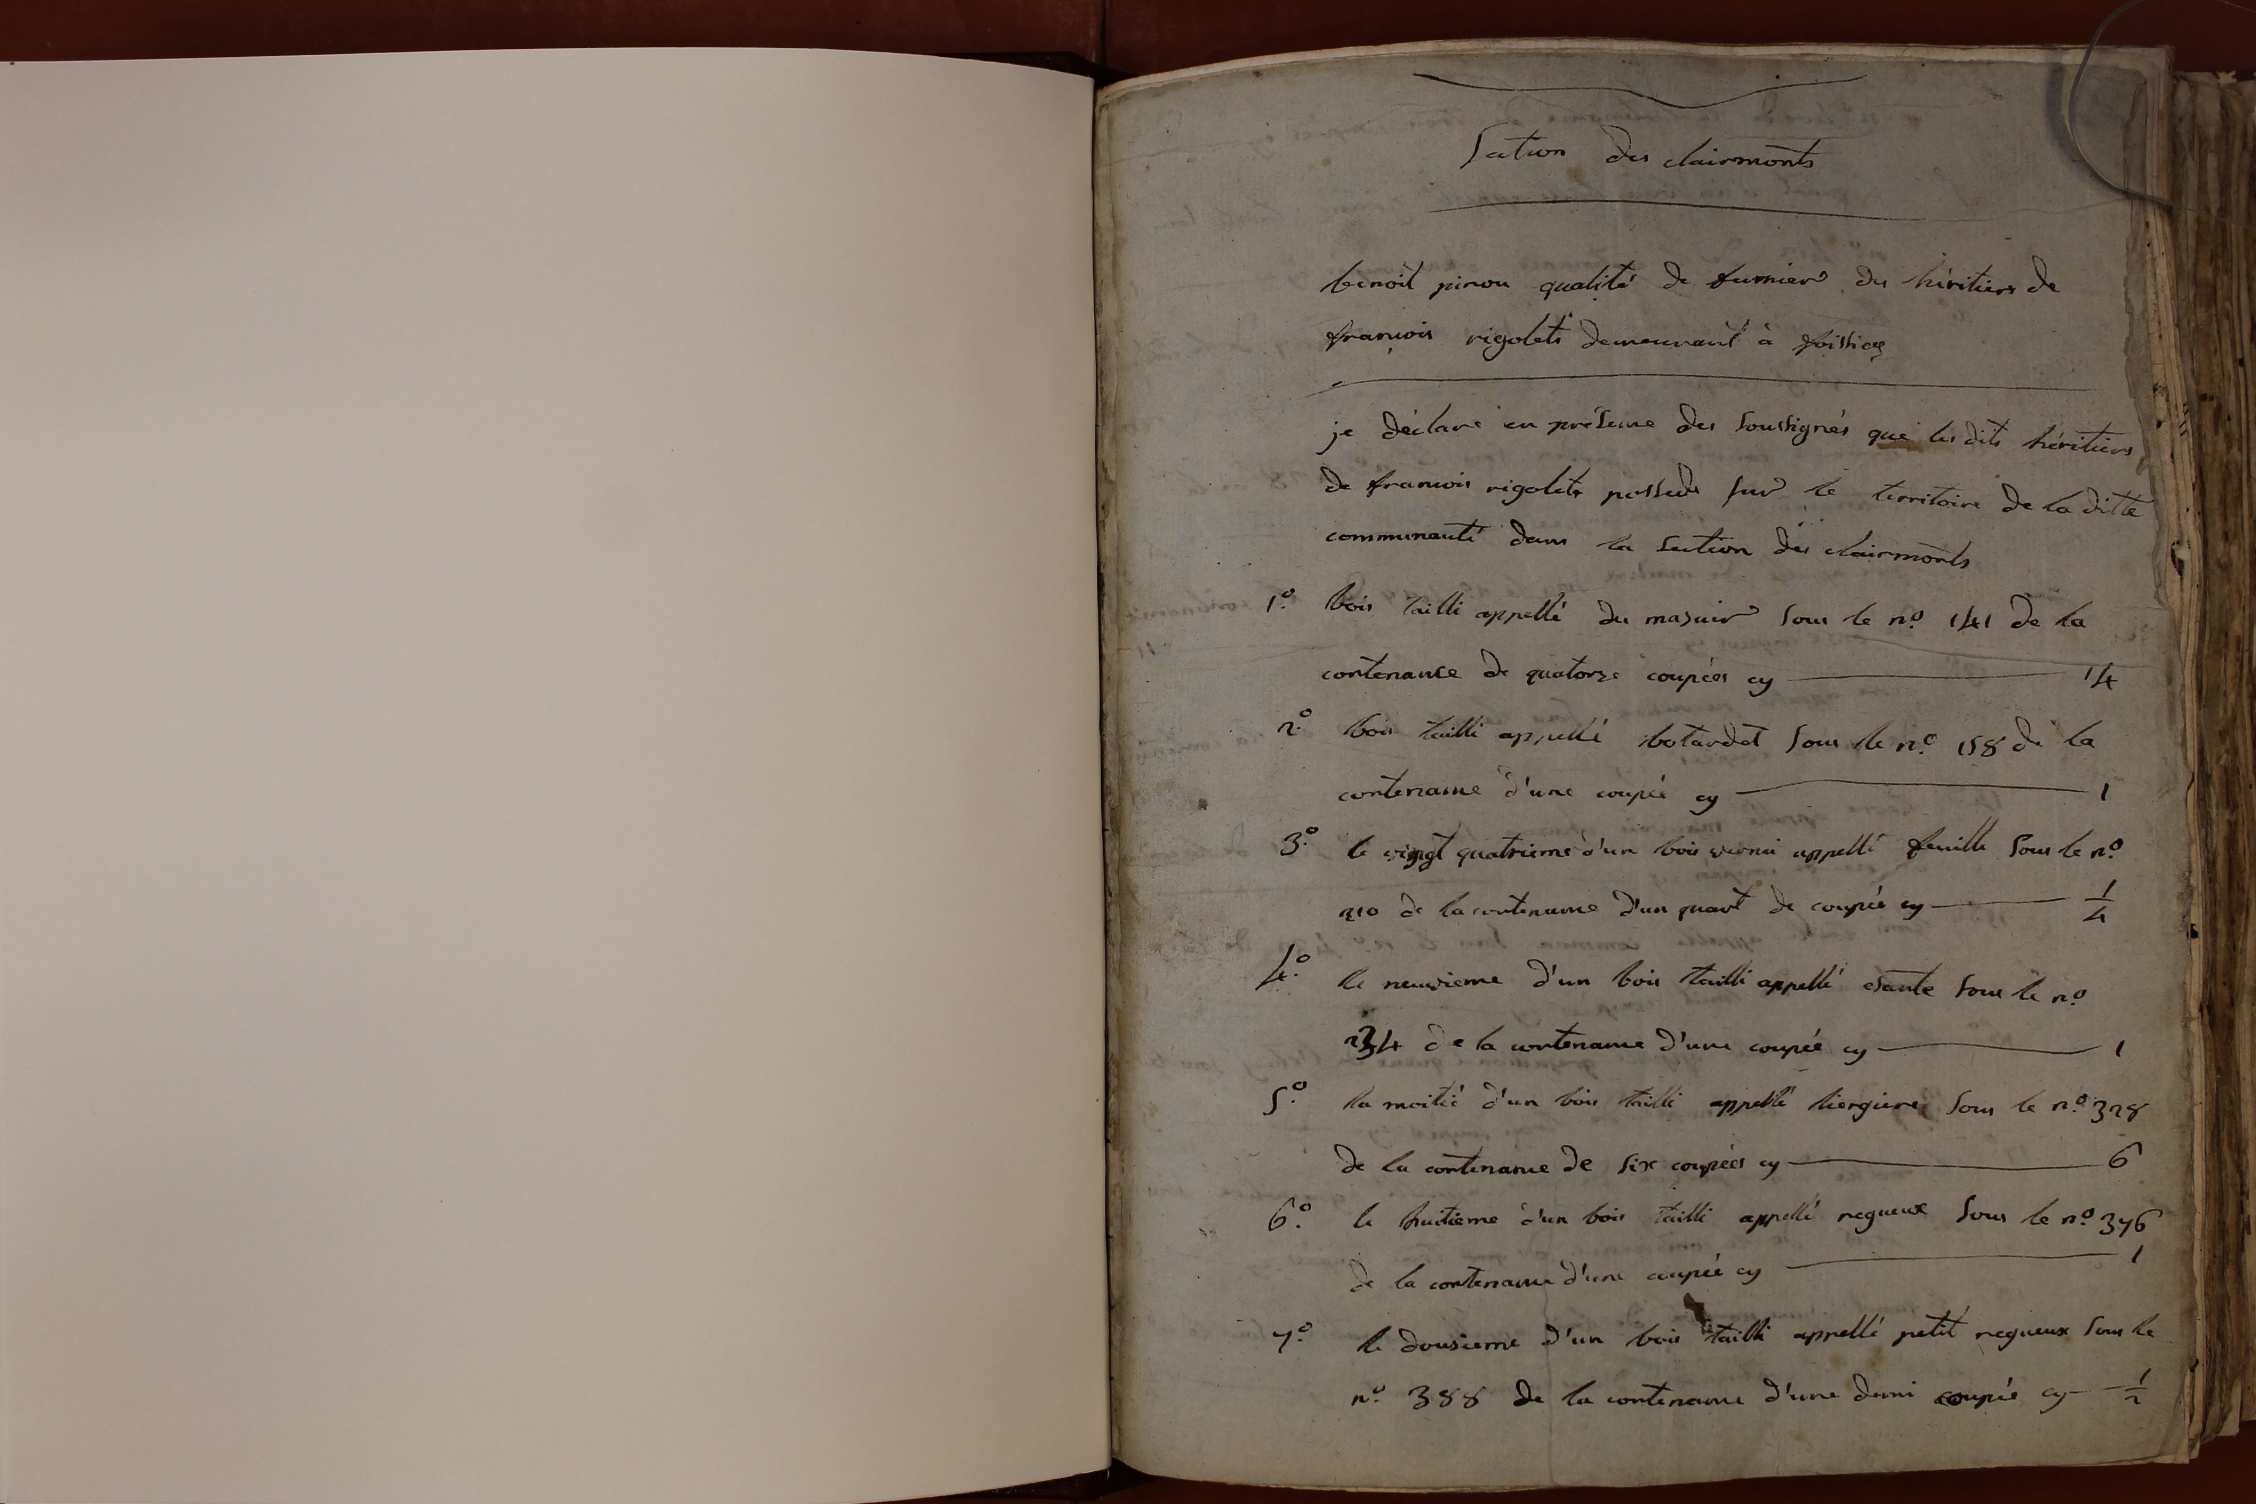 Section des clairmonts
benoit pirou qualité de fermier des héritiers de
francois rigolets demeurant à foissiaz
je déclare en présence des soussignés que les dits héritiers
de francois rigolets possede sur le territoire de la ditte
communauté dans la section des clairmonts
1.° bois tailli appellé du masuir sous le n.° 141 de la
contenance de quatorze coupées cy 14
2.° bois tailli appellé botardet sous le n.° 158 de la
contenance d'une coupée cy 1
3.° le vingt quatrieme d'un bois vernei appellé feuille sous le n.°
210 de la contenance d'un quart de coupée cy 1/4
4.° le neuvieme d'un bois tailli appellé esante sous le n.°
234 de la contenance d'une coupée cy 1
5.° la moitié d'un bois tailli appellé liergiere sous le n.° 328
de la contenance de six coupées cy 6
6.° le huitieme d'un bois tailli appellé negueux sous le n.° 376
de la contenance d'une coupée cy 1
7.° le dousieme d'un bois tailli appellé petit negueux sous le
n.° 388 de la contenance d'une demi coupée cy 1/2